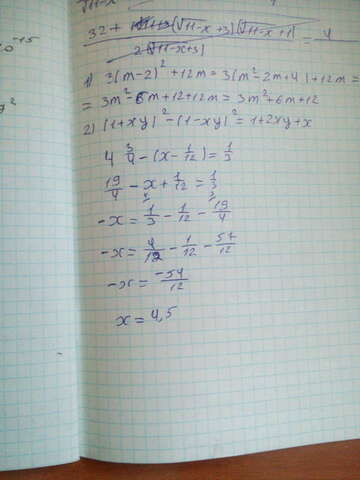 √11-x
0^-15
32 + (√11-x+3)(√11-x+1) / 2(√11-x+3) = 4
y²
1) 3(m-2)² + 12m = 3(m²-2m+4)+12m =
= 3m² - 6m + 12 + 12m = 3m² + 6m + 12
2) (1+xy)² - (1-xy)² = 1+2xy+x
4 3/4 - (x - 1/12) = 1/3
19/4 - x + 1/12 = 1/3
-x = 1/3 - 1/12 - 19/4
-x = 4/12 - 1/12 - 57/12
-x = -54/12
x = 4,5